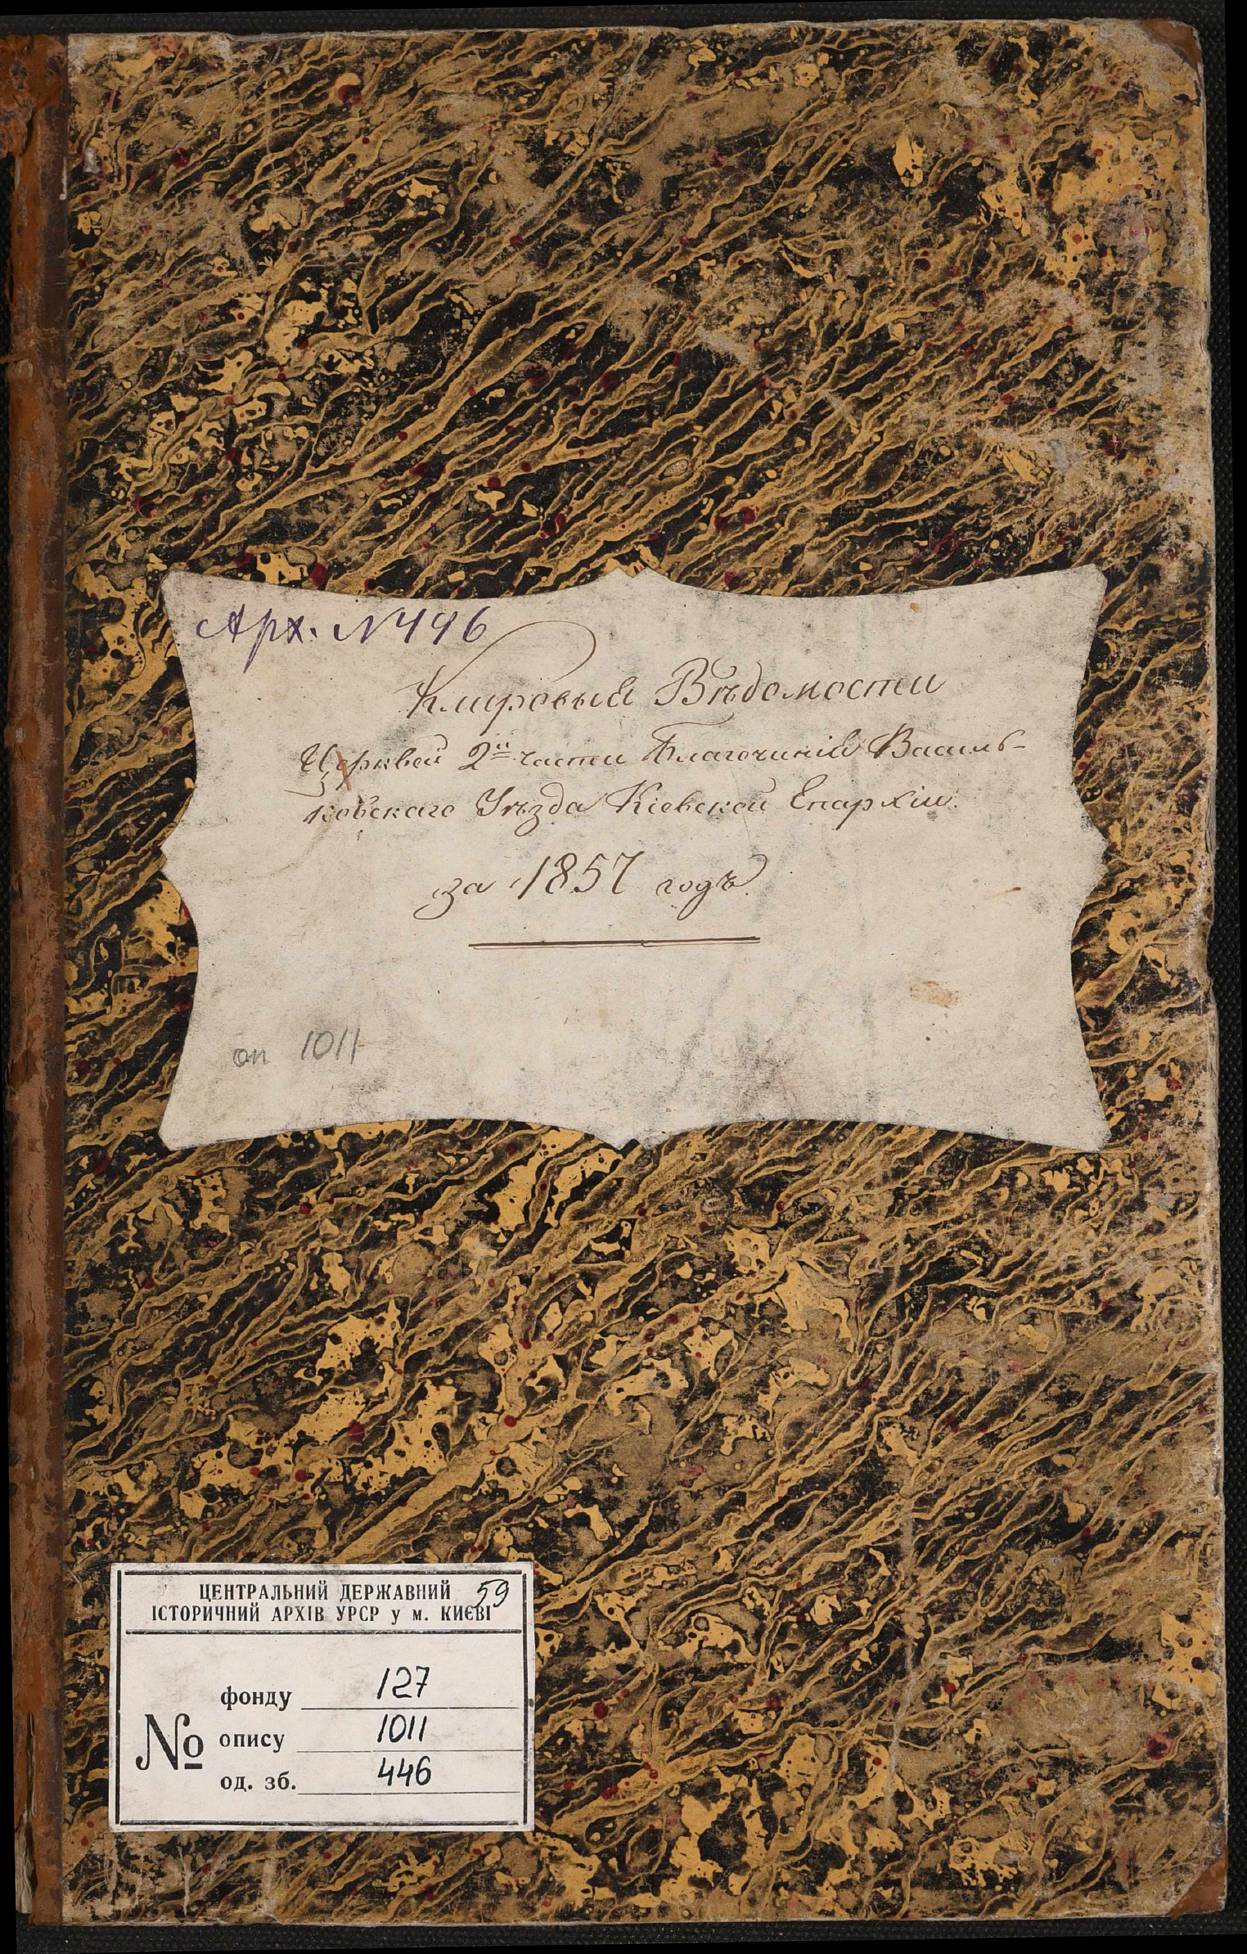 Арх. N 446
Клировыя Вѣдомости
Церквей 2й части Благочинія Василь-
ковскаго Уѣзда Кіевской Епархіи.
за 1857 годъ.
оп 1011
ЦЕНТРАЛЬНИЙ ДЕРЖАВНИЙ 59
ІСТОРИЧНИЙ АРХІВ УРСР у м. КИЄВІ
фонду 127
№ опису 1011
од. зб. 446